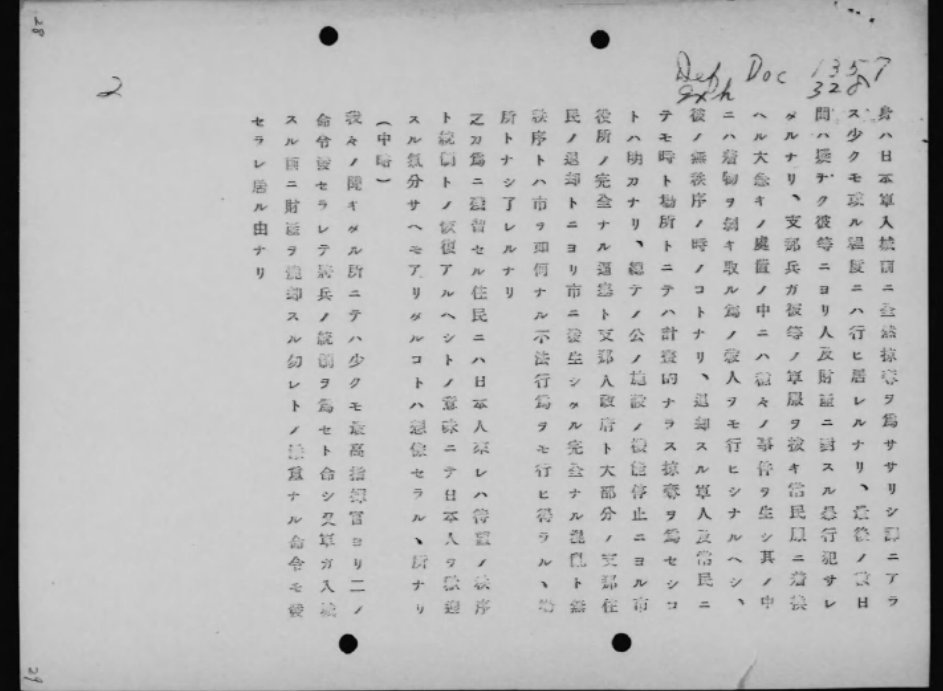 2
Def Doc 1357
Exh 328
身ハ日本軍入城前ニ全然掠奪ヲ為ササリシ譯ニアラ
ス少クモ或ル程度ニハ行ヒ居レルナリ、最後ノ數日
間ハ疑ナク彼等ニヨリ人及財産ニ對スル暴行犯サレ
タルナリ、支那兵ガ彼等ノ軍服ヲ脱キ常民服ニ着換
ヘル大急キノ處置ノ中ニハ種々ノ事件ヲ生シ其ノ中
ニハ着物ヲ剥キ取ル為ノ殺人ヲモ行ヒシナルヘシ、
彼ノ無秩序ノ時ノコトナリ、退却スル軍人及常民ニ
テモ時ト場所トニテハ計畫的ナラス掠奪ヲ為セシコ
トハ明カナリ、總テノ公ノ施設ノ機能停止ニヨル市
役所ノ完全ナル逼塞ト支那人政府ト大部分ノ支那住
民ノ退却トニヨリ市ニ發生シタル完全ナル混亂ト無
秩序トハ市ヲ如何ナル不法行為ヲモ行ヒ得ラルヽ場
所トナシ了レルナリ
之カ為ニ殘留セル住民ニハ日本人來レハ待望ノ秩序
ト統制トノ恢復アルヘシトノ意味ニテ日本人ヲ歡迎
スル氣分サヘモアリタルコトハ想像セラルヽ所ナリ
(中略)
我々ノ聞キタル所ニテハ少クモ最高指揮官ヨリ二ノ
命令發セラレテ將兵ノ統制ヲ為セト命シ又軍ガ入城
スル際ニ財産ヲ燒却スル勿レトノ嚴重ナル命令モ發
セラレ居ル由ナリ
28
29